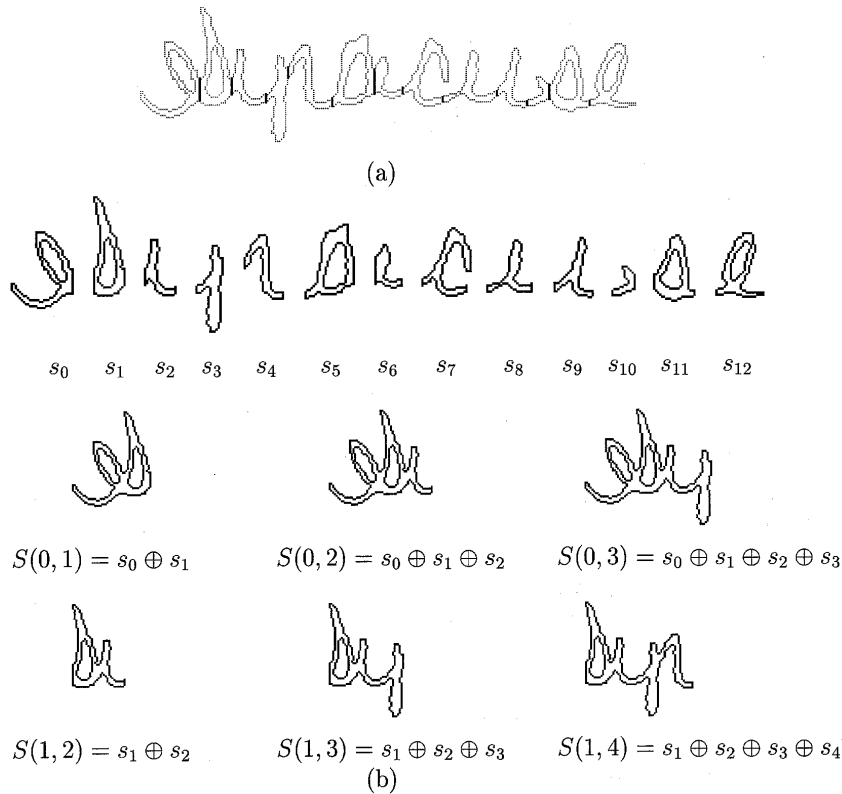 Syracuse
(a)
s₀ s₁ s₂ s₃ s₄ s₅ s₆ s₇ s₈ s₉ s₁₀ s₁₁ s₁₂
S(0,1) = s₀ ⊕ s₁ S(0,2) = s₀ ⊕ s₁ ⊕ s₂ S(0,3) = s₀ ⊕ s₁ ⊕ s₂ ⊕ s₃
S(1,2) = s₁ ⊕ s₂ S(1,3) = s₁ ⊕ s₂ ⊕ s₃ S(1,4) = s₁ ⊕ s₂ ⊕ s₃ ⊕ s₄
(b)